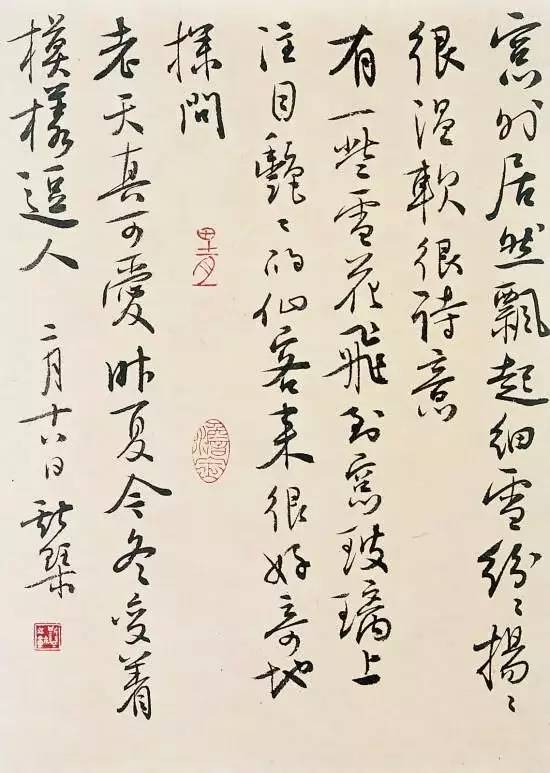 窓外居然飄起細雪紛〻揚〻
很温軟很詩意
有一些雪花飛到窓玻璃上
注目艷〻的仙客来很好奇地
探問
老天真可愛昨夏今冬变着
模樣逗人 二月十八日